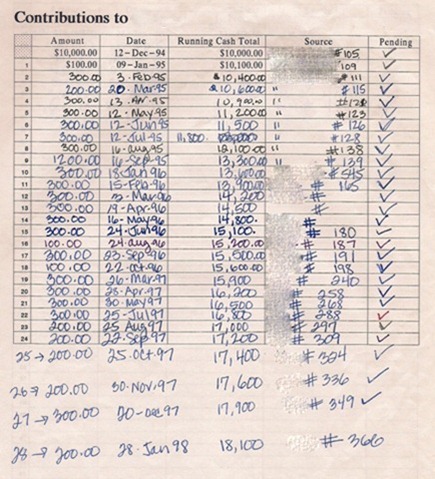 Contributions to
Amount Date Running Cash Total Source Pending
$10,000.00 12-Dec-94 $10,000.00 #105 ✓
1 $100.00 09-Jan-95 $10,100.00 109 ✓
2 300.00 3-Feb-95 $10,400.00 #111 ✓
3 200.00 20-Mar-95 $10,600.00 " #115 ✓
4 300.00 13-Apr-95 10,900.00 " ✓
5 300.00 12-May-95 11,200.00 " #123 ✓
6 300.00 12-Jun-95 11,500 " #126 ✓
7 300.00 12-Jul-95 11,800. " #128 ✓
8 300.00 16-Aug-95 12,100.00 " #138 ✓
9 1200.00 16-Sep-95 13,300.00 " #139 ✓
10 300.00 18-Jan-96 13,600.00 #545 ✓
11 300.00 15-Feb-96 13,900.00 # 165 ✓
12 300.00 Mar-96 14,200 # ✓
13 300.00 19-Apr-96 14,500 # ✓
14 300.00 16-May-96 14,800. # ✓
15 300.00 24-Jun-96 15,100. # 180 ✓
16 100.00 24-Aug-96 15,200.00 # 187 ✓
17 300.00 23-Sep-96 15,500.00 # 191 ✓
18 100.00 22-Oct-96 15,600.00 # 198 ✓
19 300.00 26-Mar-97 15,900 # 240 ✓
20 300.00 28-Apr-97 16,200 # 258 ✓
21 300.00 30-May 97 16,500 # 268 ✓
22 300.00 25-Jul 97 16,800 # 288 ✓
23 200.00 25 Aug 97 17,000 # 297 ✓
24 200.00 22-Sep 97 17,200 # 309 ✓
25 → 200.00 25-Oct-97 17,400 # 324 ✓
26 → 200.00 30-Nov,97 17,600 # 336 ✓
27 → 300.00 20-Dec 97 17,900 # 349 ✓
28 → 200.00 28-Jan 98 18,100 # 366